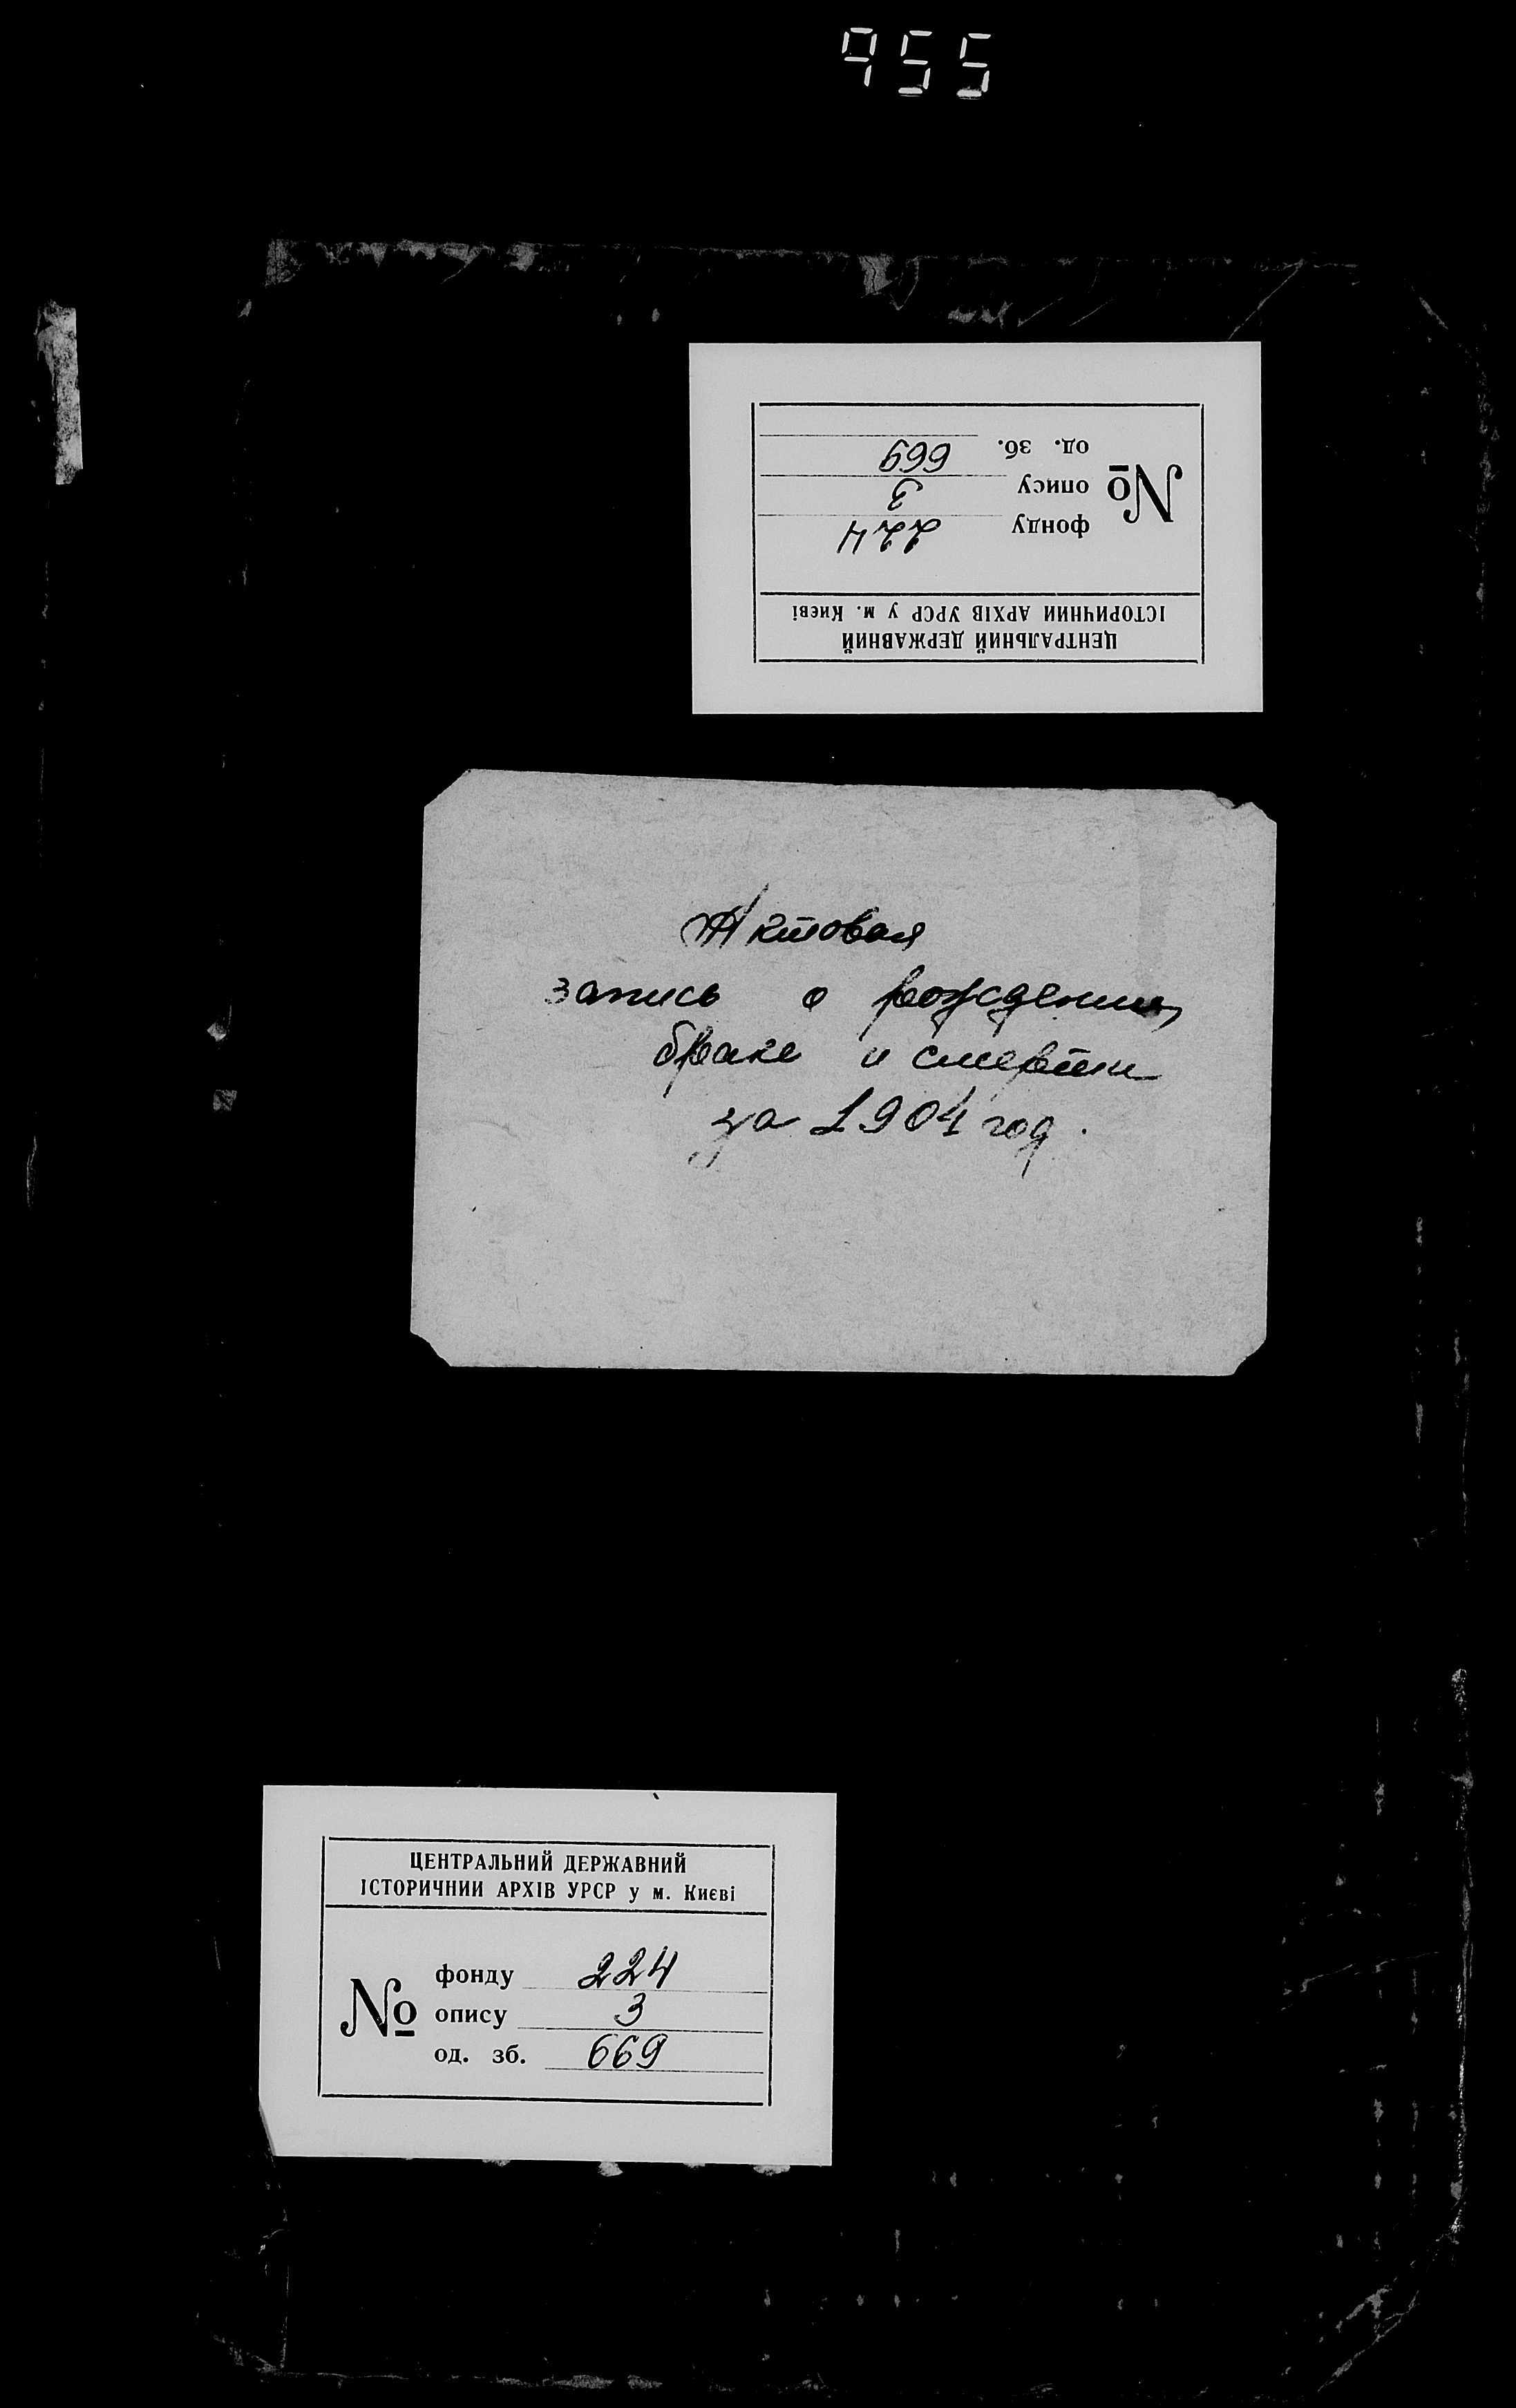 955
од. зб. 669
опису 3
№
фонду 224
ІСТОРИЧНИИ АРХІВ УРСР у м. Києві
ЦЕНТРАЛЬНИЙ ДЕРЖАВНИЙ
Актовая
запись о рождении,
браке и смерти
за 1904 год.
ЦЕНТРАЛЬНИЙ ДЕРЖАВНИЙ
ІСТОРИЧНИИ АРХІВ УРСР у м. Києві
фонду 224
№ опису 3
од. зб. 669